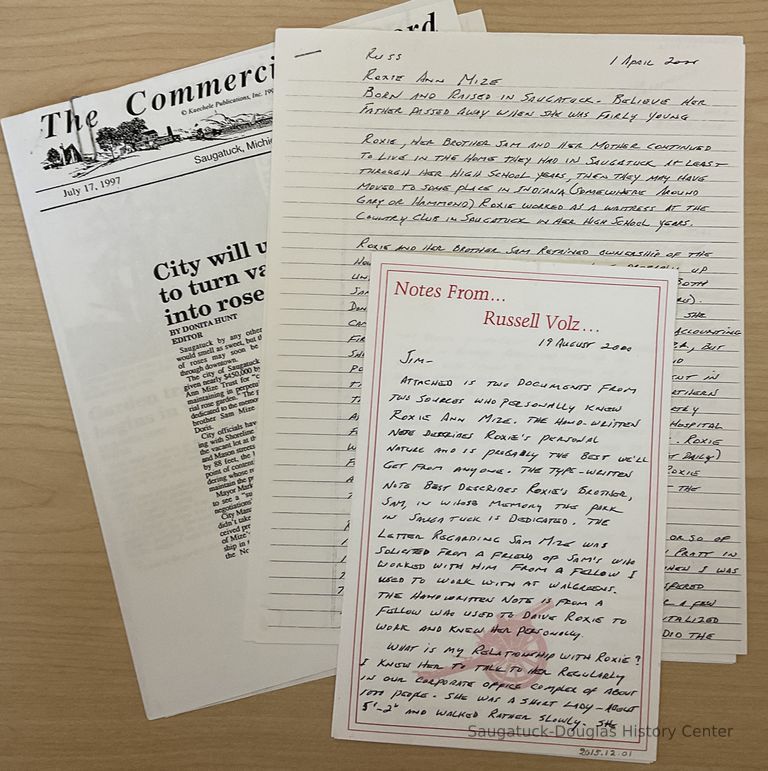 The Commerci
ord
© Kaechele Publications, Inc. 199
Saugatuck, Michi
July 17, 1997
City will u
to turn va
into rose
BY DONITA HUNT
EDITOR
Saugatuck by any other
would smell as sweet, but th
of roses may soon be
through downtown.
The city of Saugatuck
given nearly $450,000 by
Ann Mize Trust for "c
maintaining in perpetu
rial rose garden. The p
dedicated to the memo
brother Sam Mize
Doris.
City officials have
ing with Shoreline
the vacant lot at th
and Mason streets
by 88 feet, the l
point of content
dering whose re
maintain the p
Mayor Mark
to see a "su
negotiations"
City Mana
didn't take
ceived pro
of Mize'
ship in t
the No
RUSS
1 APRIL 2000
ROXIE ANN MIZE
BORN AND RAISED IN SAUGATUCK - BELIEVE HER
FATHER PASSED AWAY WHEN SHE WAS FAIRLY YOUNG
ROXIE, HER BROTHER SAM AND HER MOTHER CONTINUED
TO LIVE IN THE HOME THEY HAD IN SAUGATUCK AT LEAST
THROUGH HER HIGH SCHOOL YEARS, THEN THEY MAY HAVE
MOVED TO SOME PLACE IN INDIANA (SOMEWHERE AROUND
GARY OR HAMMOND) ROXIE WORKED AS A WAITRESS AT THE
COUNTRY CLUB IN SAUGATUCK IN HER HIGH SCHOOL YEARS.
ROXIE AND HER BROTHER SAM RETAINED OWNERSHIP OF THE
UP
BOTH
SHE
ACCOUNTING
ER, BUT
ENT IN
RTHERN
ETRY
HOSPITAL
ROXIE
T DAILY)
ROXIE
THE
OR SO OF
PRATT IN
WHEN I WAS
SPERED
A FEW
ITALIZED
DID THE
Notes From...
Russell Volz...
19 AUGUST 2000
JIM-
ATTACHED IS TWO DOCUMENTS FROM
TWO SOURCES WHO PERSONALLY KNEW
ROXIE ANN MIZE. THE HAND-WRITTEN
NOTE DESCRIBES ROXIE'S PERSONAL
NATURE AND IS PROBABLY THE BEST WE'LL
GET FROM ANYONE. THE TYPE-WRITTEN
NOTE BEST DESCRIBES ROXIE'S BROTHER,
SAM, IN WHOSE MEMORY THE PARK
IN SAUGATUCK IS DEDICATED. THE
LETTER REGARDING SAM MIZE WAS
SOLICITED FROM A FRIEND OF SAM'S WHO
WORKED WITH HIM FROM A FELLOW I
USED TO WORK WITH AT WALGREENS.
THE HANDWRITTEN NOTE IS FROM A
FELLOW WHO USED TO DRIVE ROXIE TO
WORK AND KNEW HER PERSONALLY.
WHAT IS MY RELATIONSHIP WITH ROXIE?
I KNEW HER TO TALK TO HER REGULARLY
IN OUR CORPORATE OFFICE COMPLEX OF ABOUT
1000 PEOPLE. SHE WAS A SHORT LADY - ABOUT
5'-2" AND WALKED RATHER SLOWLY. SHE
Saugatuck-Douglas History Center
2015.12.01